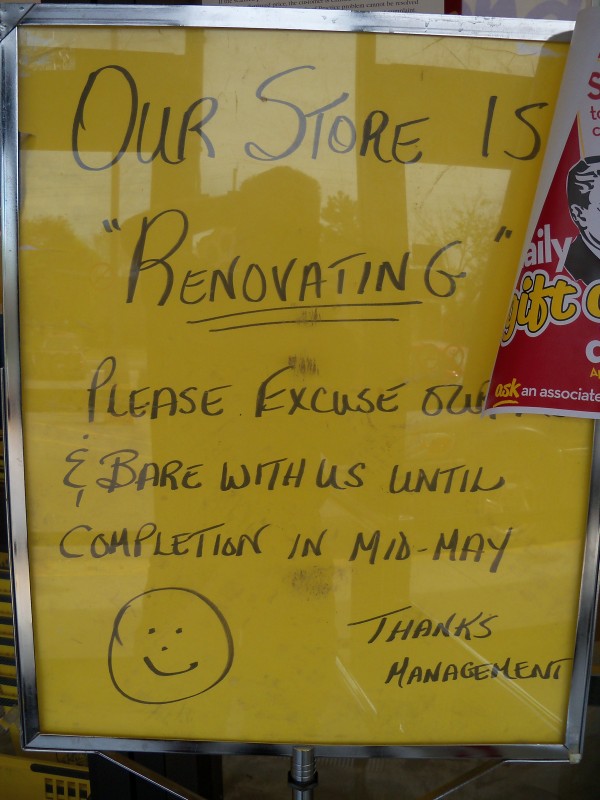 OUR STORE IS
"RENOVATING"
PLEASE EXCUSE OUR
& BARE WITH US UNTIL
COMPLETION IN MID-MAY
THANKS
MANAGEMENT
aily
gift
ask an associate